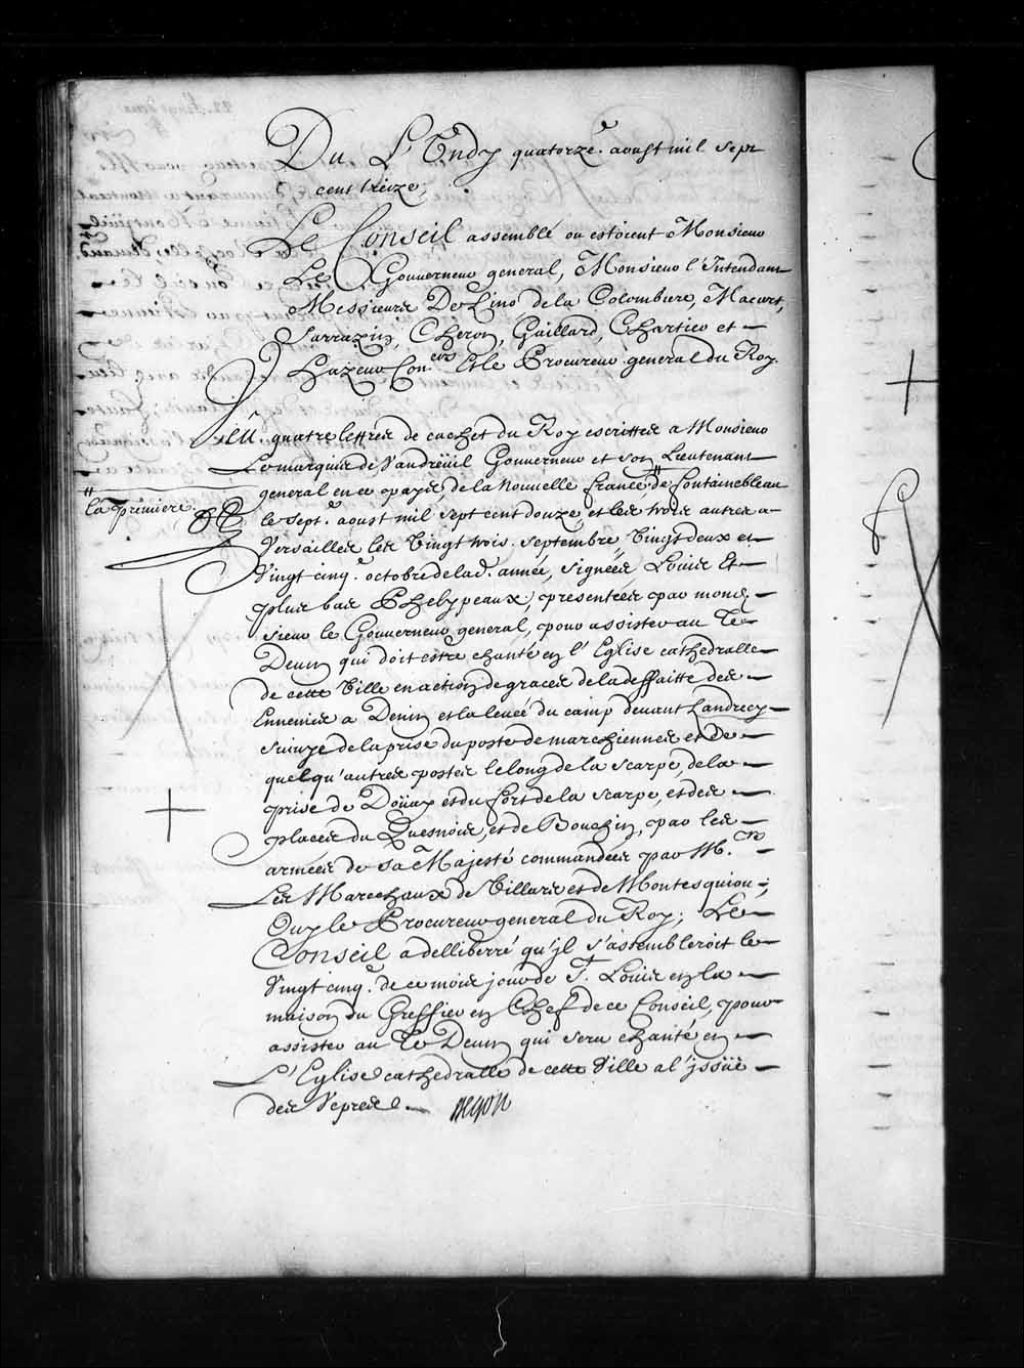 Du L'Undy quatorze.e aoust mil sept
cent treize;
Le Conseil assemblé ou estoient Monsieur
Le Gouverneur general, Monsieur l'Intendant
Messieurs De Lino de la Colombiere, Macart,
Sarrazin, Cheron, Gaillard, Chartier et
Hazeur Con.ers Et le Procureur general du Roy
Veu quatre lettres de cachet du Roy escrittes a Monsieur
Le marquis de Vaudreüil Gouverneur et son Lieutenant
general en ce pays de la Nouvelle france " de fontainebleau
" la premiere.
le sept.e aoust mil sept cent douze, et les trois autres a
Versailles les Vingt trois.e septembre, Vingt deux et
Vingt cinq.e octobre de lad.e année, signées, Louis Et
plus bas Phelypeaux, presentées par mond.
sieur le Gouverneur general, pour assister au Te
Deum qui doit estre chanté en l'Eglise cathedralle
de cette Ville en action de graces de la deffaitte des
Ennemis a Denin et la leueé du camp deuant Landrecy
suivye de la prise du poste de marchiennes et de
quelqu'autres postes le long de la scarpe, de la
prise de Doüay et du fort de la scarpe, et des
places du Quesnois, et de Bouchin, par les
armées de sa Majesté commandées par M.rs
Les Marechaux de Villars et de Montesquiou;
Ouy le Procureur general du Roy; Le
Conseil a delliberré qu'jl s'assembleroit le
Vingt cinq.e de ce mois jour de S.t Louis en la
maison du Greffier en Chef de ce Conseil, pour
assister au Te Deum qui sera chanté en
L'Eglise cathedralle de cette Ville a l'jssüe
des Vepres. Begon